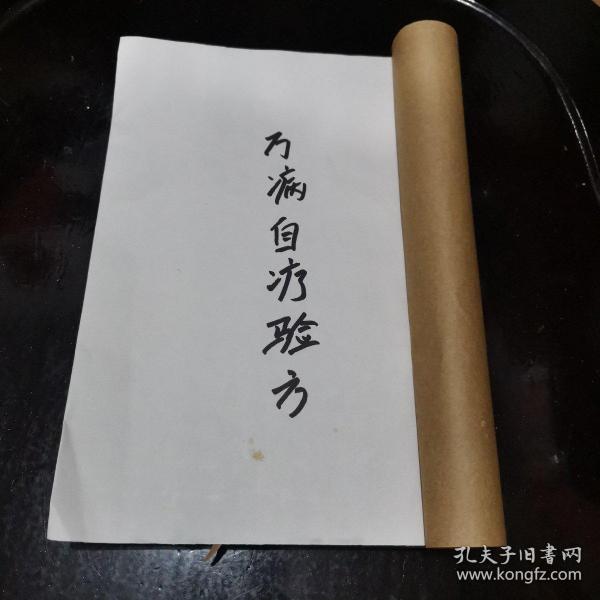 万病自疗验方
孔夫子旧書网
www.kongfz.com